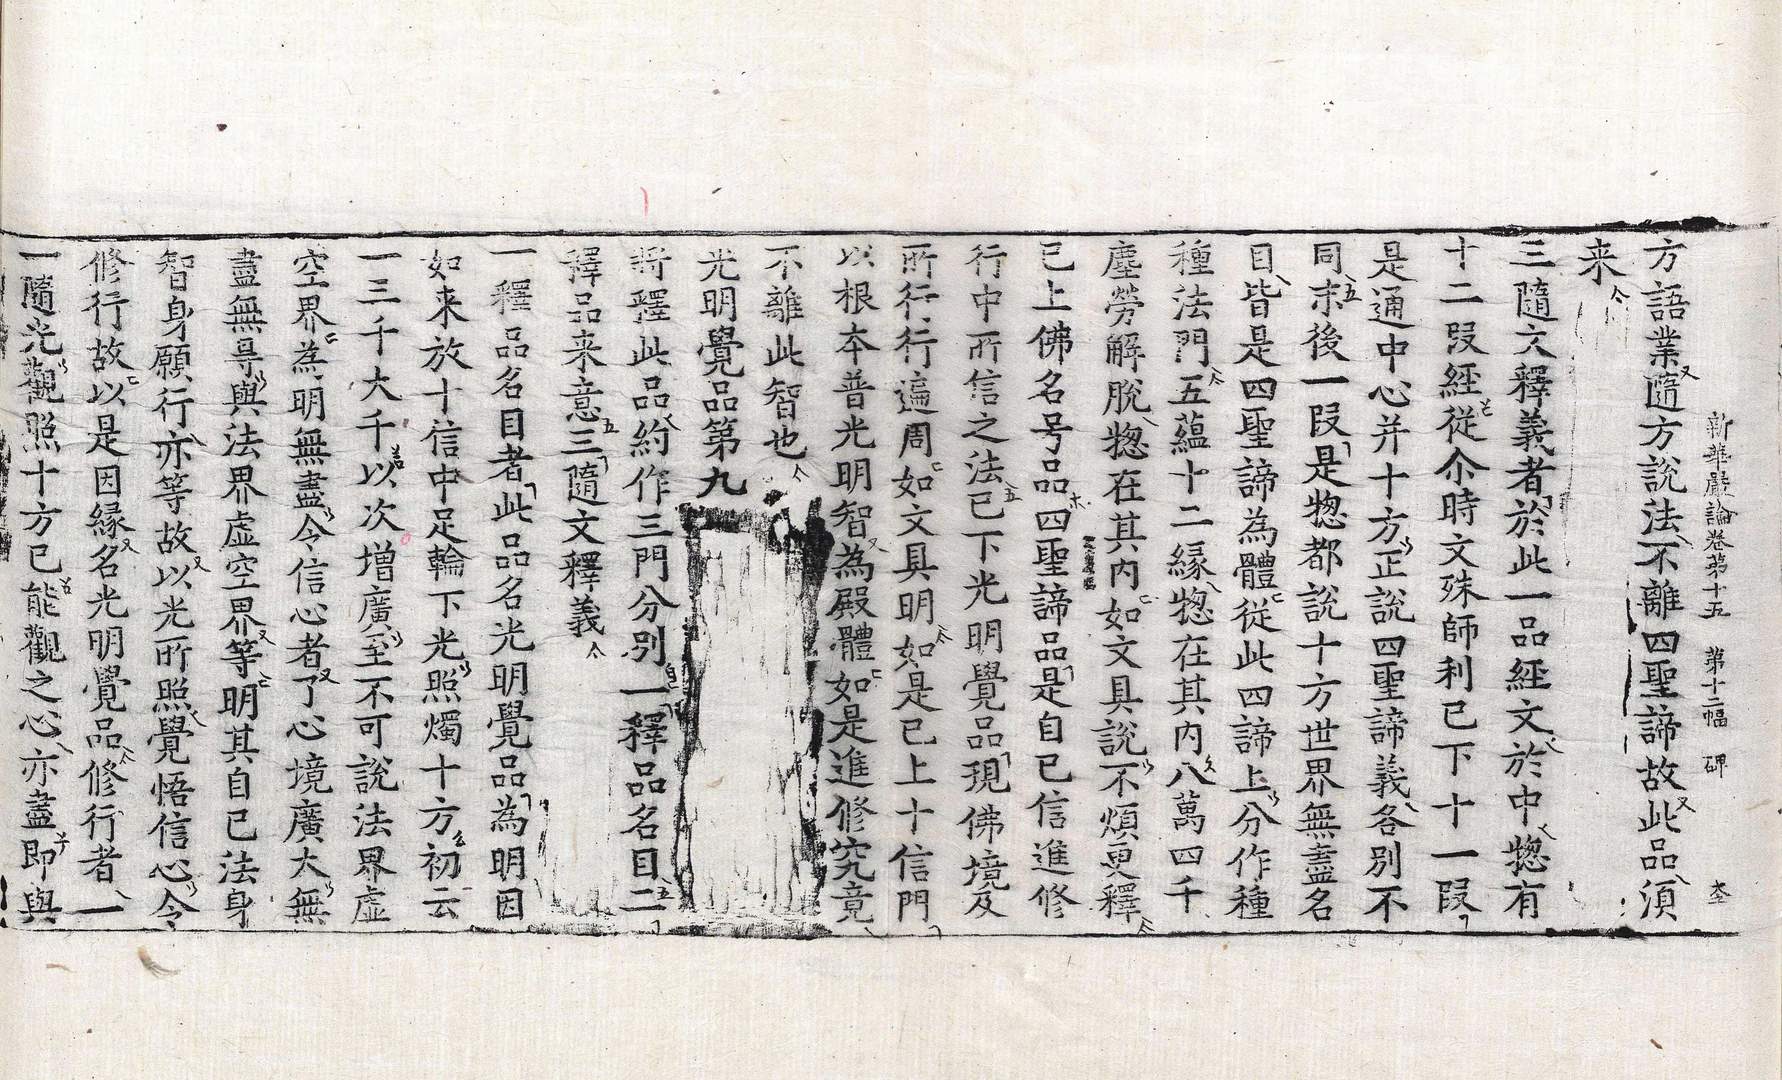 新華嚴論卷第十五 第十二幅 碑
方語業隨方說法不離四聖諦故此品湏
来
三隨文釋義者於此一品經文於中惣有
十二段經從尒時文殊師利已下十一段
是通中心并十方正說四聖諦義各別不
同末後一段是惣都說十方世界無盡名
目皆是四聖諦為體從此四諦上分作種
種法門五蘊十二緣惣在其内八萬四千
塵勞解脫惣在其内如文具說不煩更釋
已上佛名号品四聖諦品是自己信進修
行中所信之法已下光明覺品現佛境及
所行行遍周如文具明如是已上十信門
以根本普光明智為殿體如是進修究竟
不離此智也
光明覺品第九
將釋此品約作三門分別一釋品名目二
釋品来意三隨文釋義
一釋品名目者此品名光明覺品為明因
如来放十信中足輪下光照燭十方初云
一三千大千以次增廣至不可說法界虛
空界為明無盡令信心者了心境廣大無
盡無㝵與法界虛空界等明其自己法身
智身願行亦等故以光所照覺悟信心令
修行故以是因緣名光明覺品修行者一
一隨光觀照十方已能觀之心亦盡即與